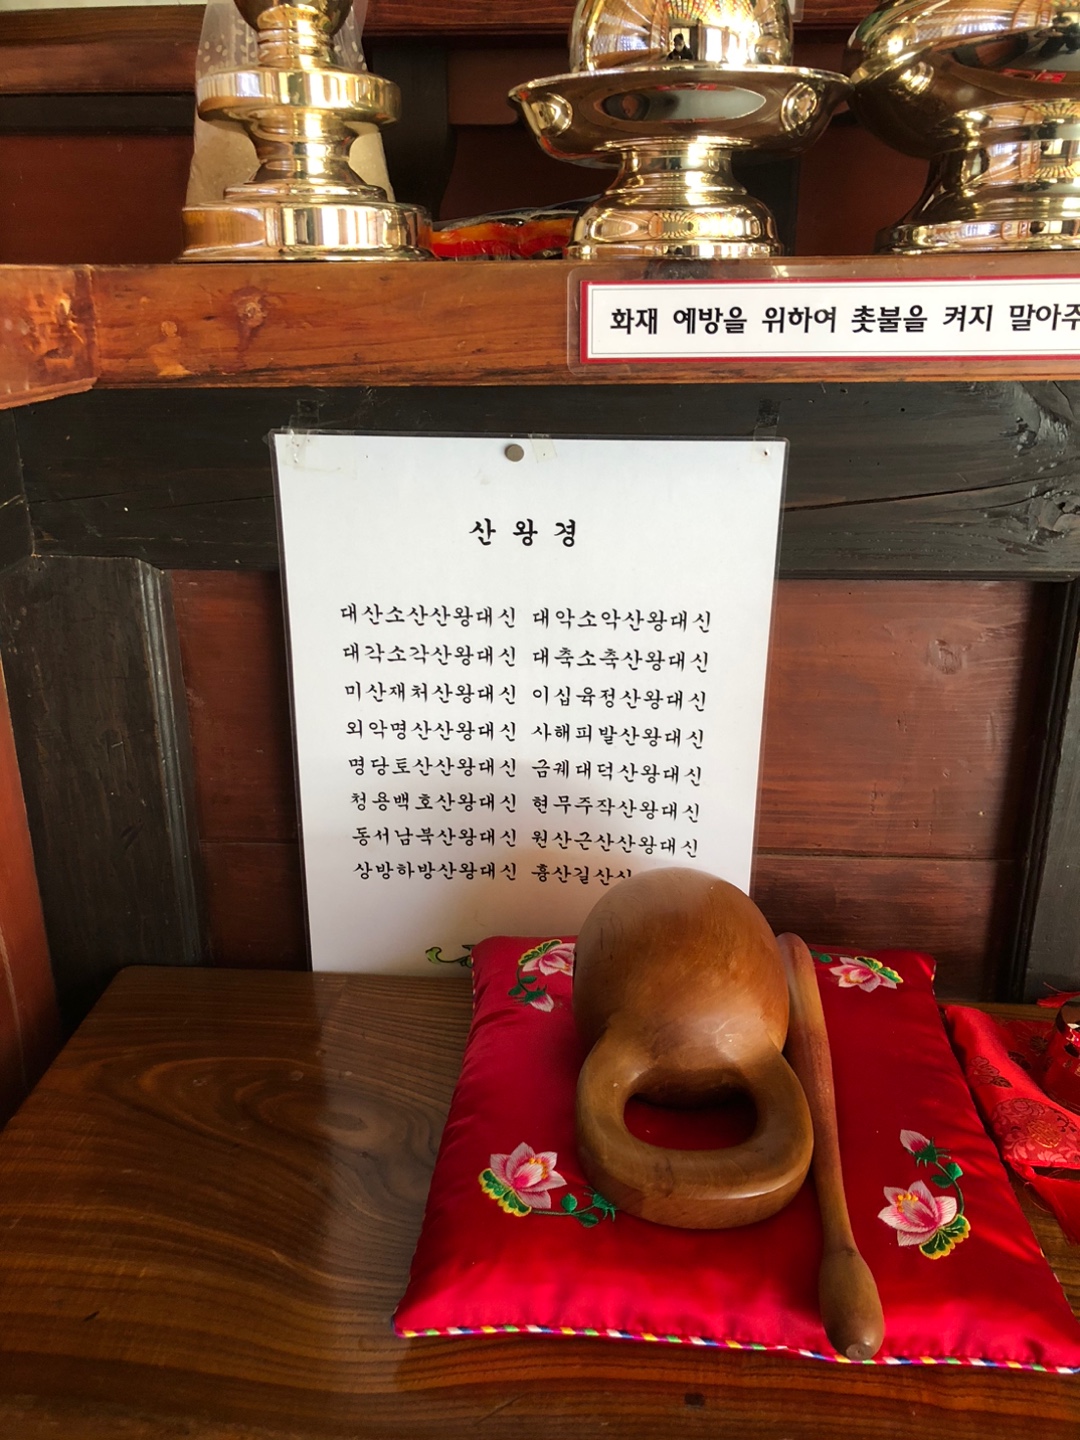 화재 예방을 위하여 촛불을 켜지 말아주
산왕경
대산소산산왕대신 대악소악산왕대신
대각소각산왕대신 대축소축산왕대신
미산재처산왕대신 이십육정산왕대신
외악명산산왕대신 사해피발산왕대신
명당토산산왕대신 금궤대덕산왕대신
청용백호산왕대신 현무주작산왕대신
동서남북산왕대신 원산근산산왕대신
상방하방산왕대신 흉산길산